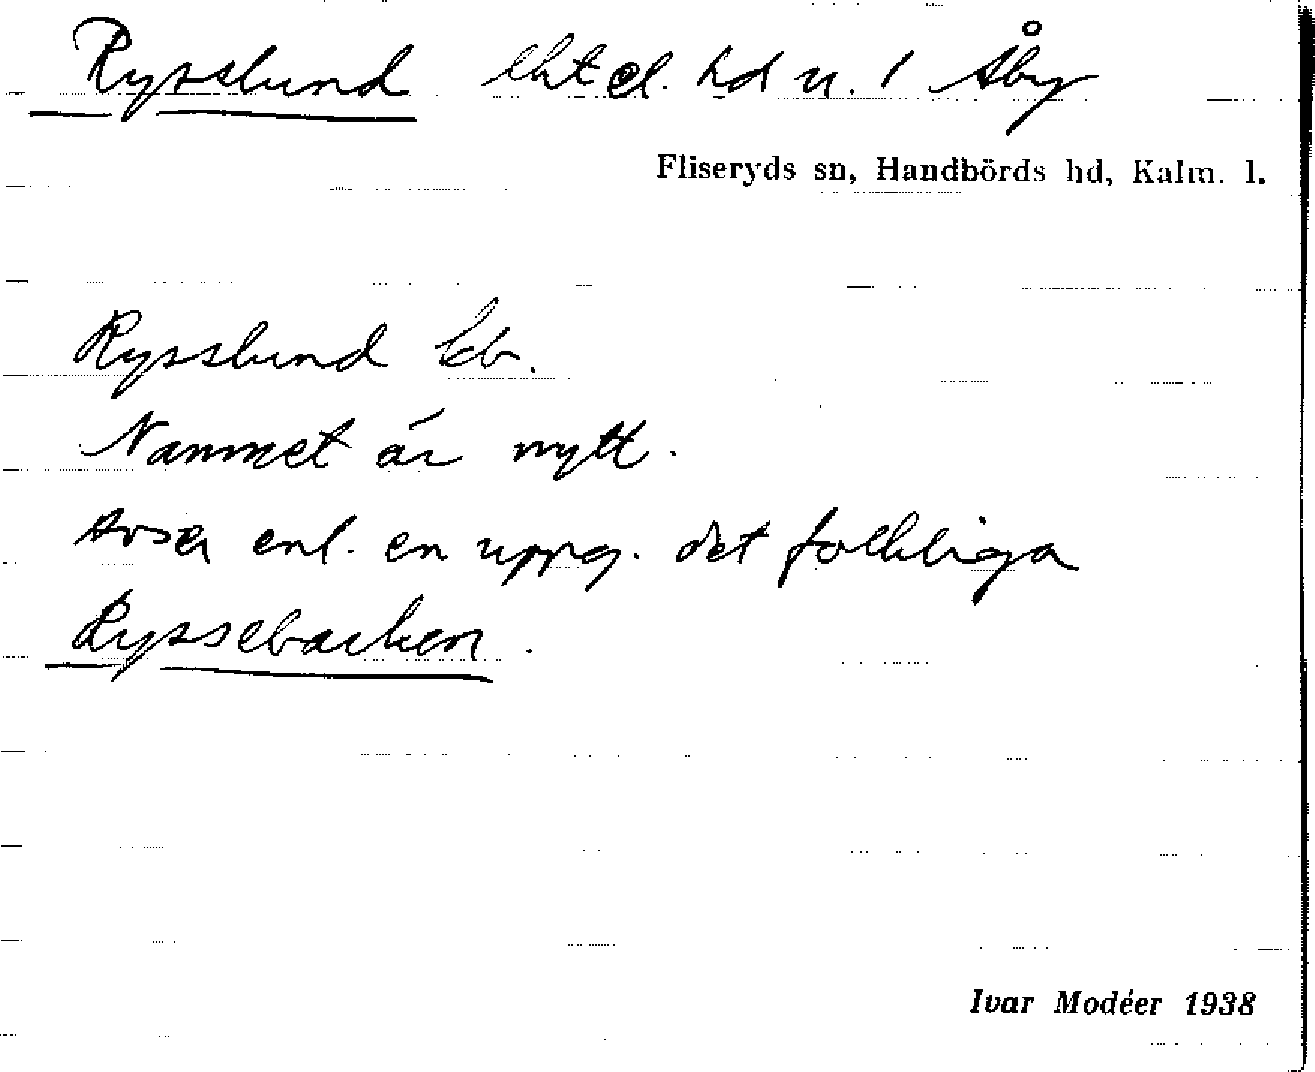 Rysslund lht el. hd u. 1 Åby
Fliseryds sn, Handbörds hd, Kalm. l.
Rysslund kb.
Namnet är nytt.
Avser enl. en uppg. det folkliga
Ryssebacken.
Ivar Modéer 1938